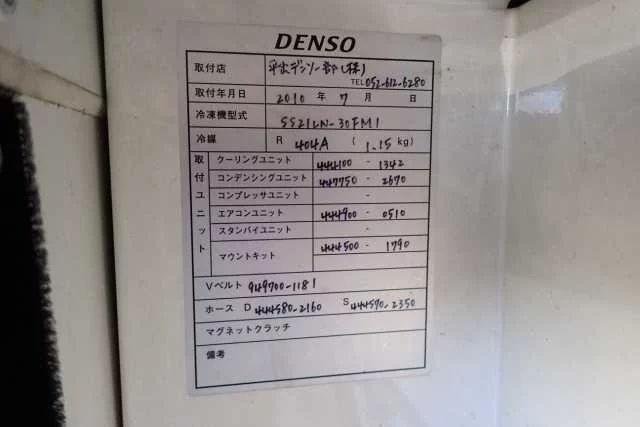 DENSO
取付店 デンソー (株)
TEL 052-612-6280
取付年月日 2010 年 7 月 日
冷凍機型式 SS21LN-30FM1
冷媒 R 404A ( 1.15 kg)
取付ユニット
クーリングユニット 444100 - 1342
コンデンシングユニット 447750 - 2670
コンプレッサユニット -
エアコンユニット 444900 - 0510
スタンバイユニット -
マウントキット 444500 - 1790
Vベルト 949700-1181
ホース D 444580-2160 S 444570-2350
マグネットクラッチ
備考